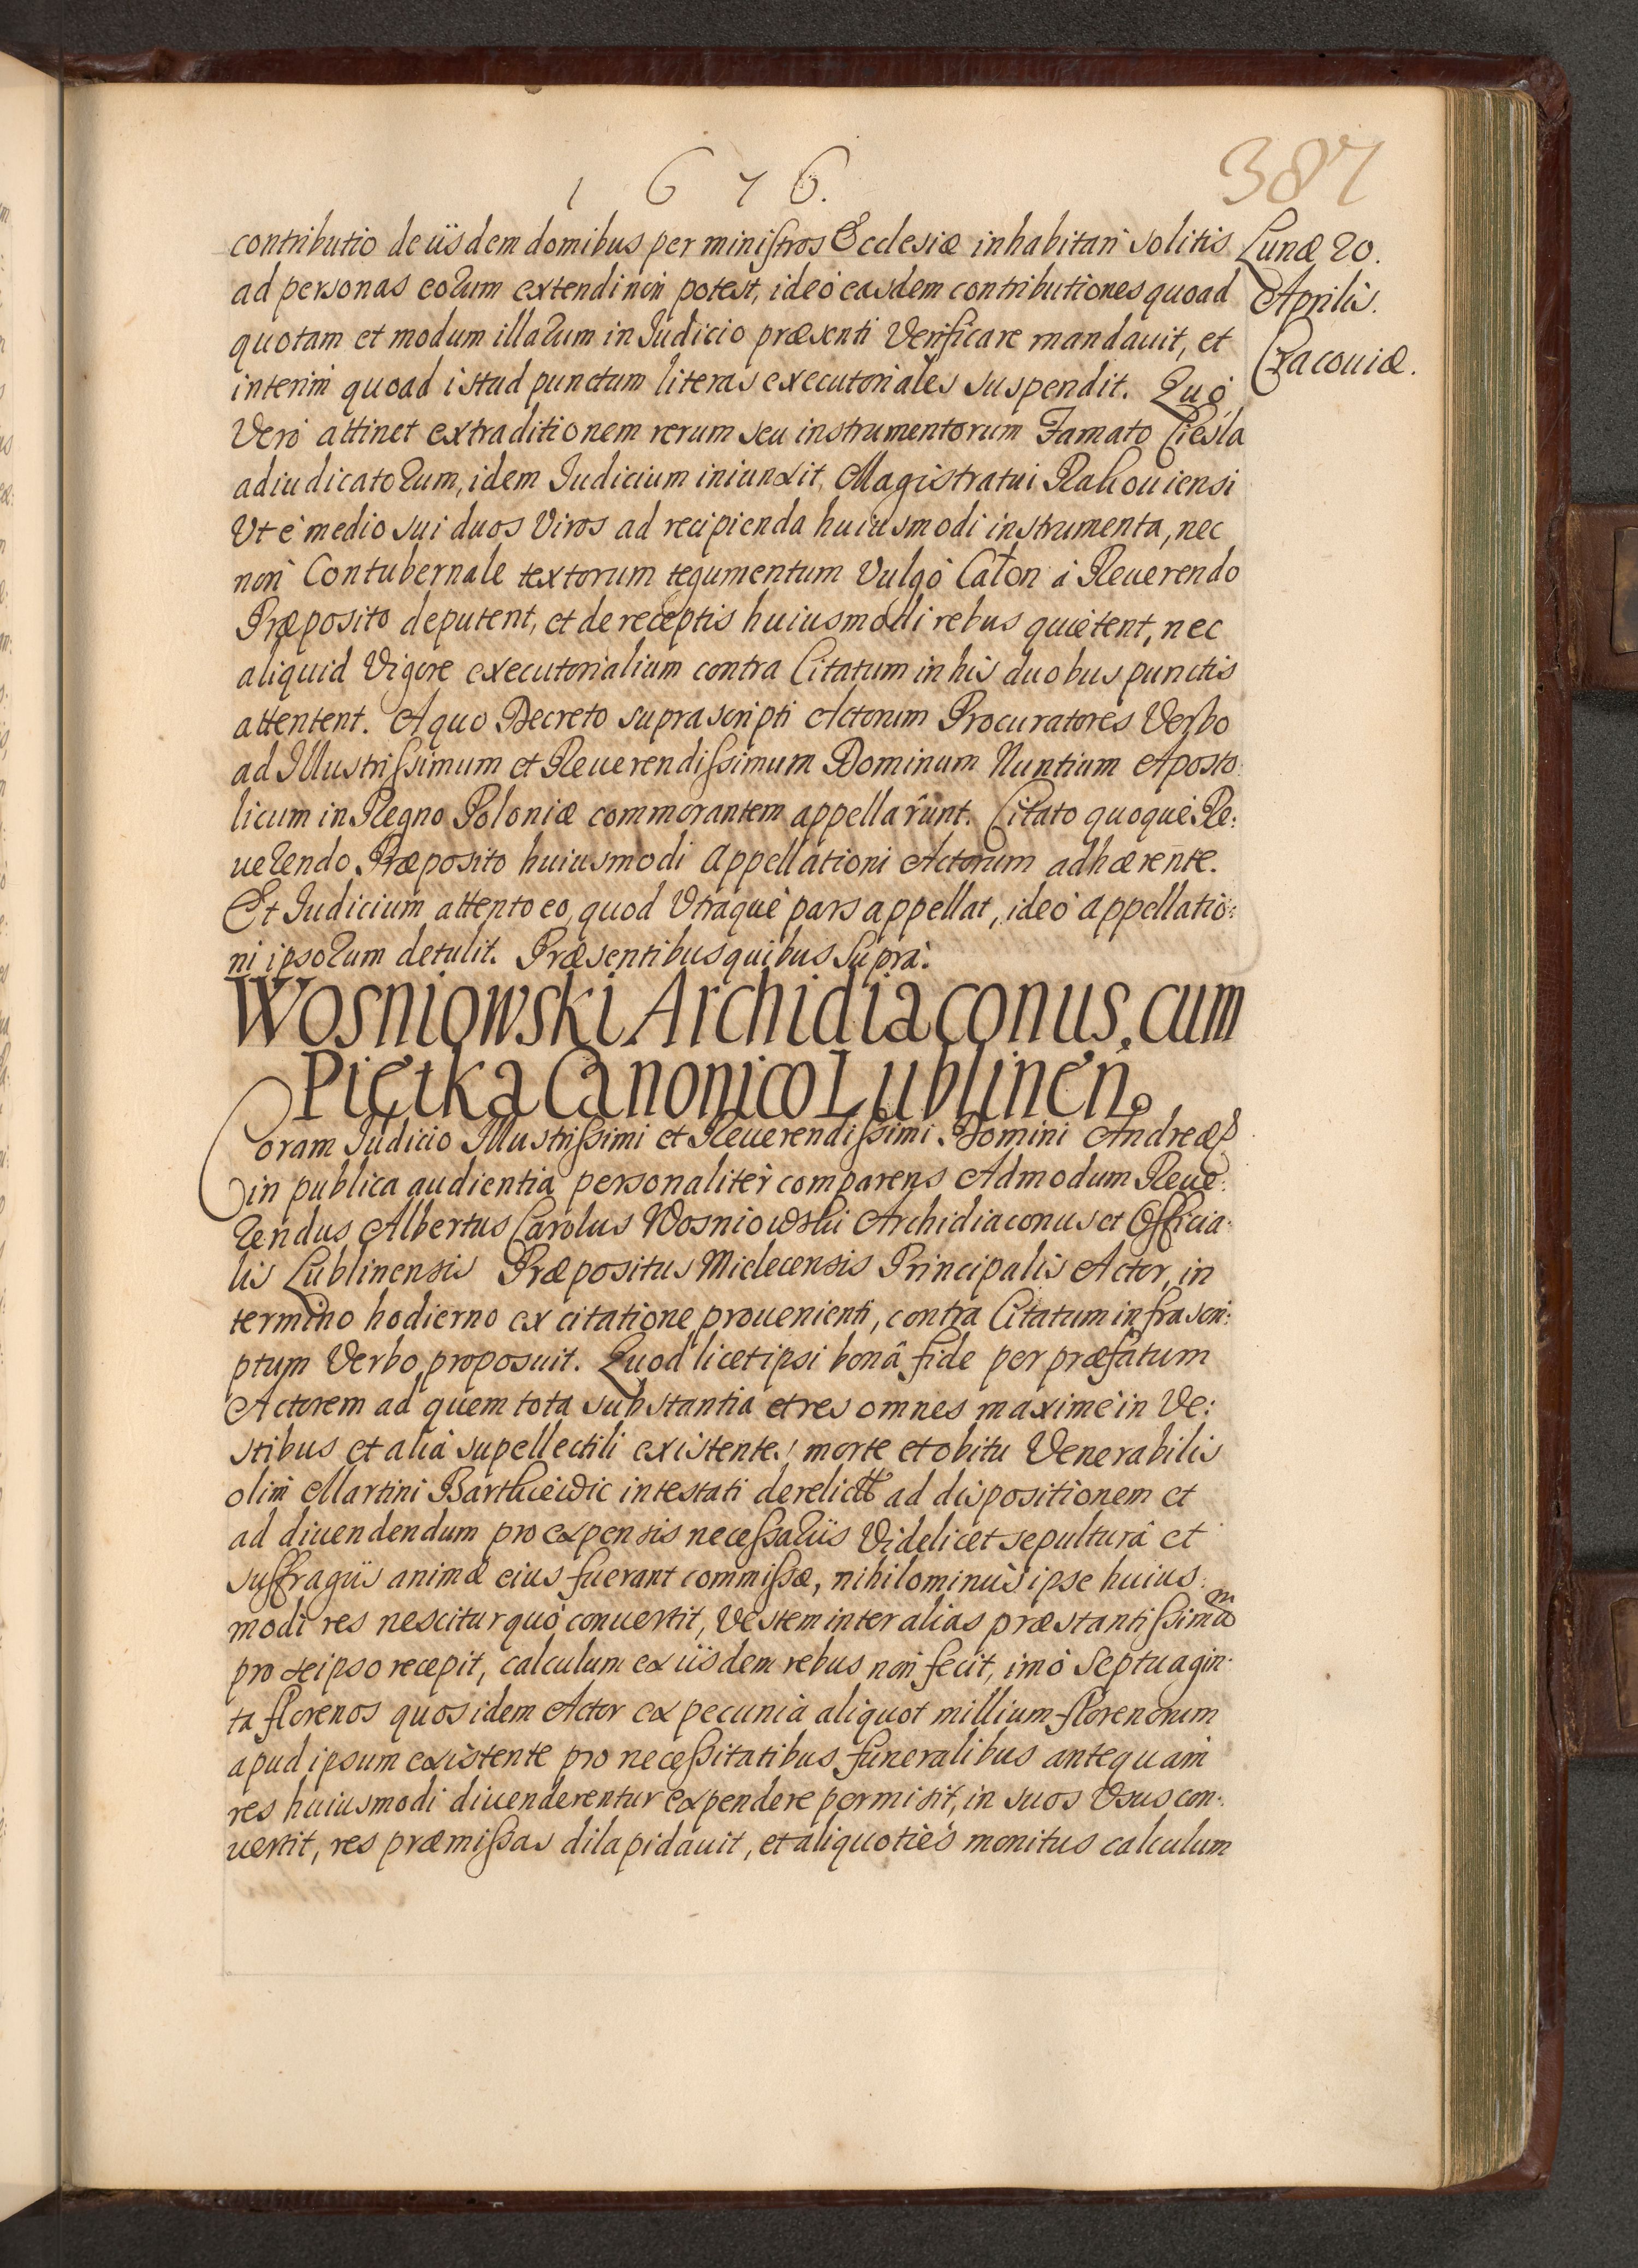 1676.
387
contributio de iisdem domibus per ministros Ecclesiæ inhabitari solitis
ad personas eorum extendi non potest, ideò easdem contributiones quoad
quotam et modum illarum in Iudicio præsenti Verificare mandauit, et
interim quoad istud punctum literas executoriales suspendit. Quò
Verò attinet extraditionem rerum seu instrumentorum Famato Cieśla
adiudicatorum, idem Iudicium iniunxit Magistratui Rakouiensi
Vt è medio sui duos Viros ad recipienda huiusmodi instrumenta, nec
non Contubernale textorum tegumentum Vulgò Całon à Reuerendo
Præposito deputent, et de receptis huiusmodi rebus quietent, nec
aliquid Vigore executorialium contra Citatum in his duobus punctis
attentent. A quo Decreto suprascripti Actorum Procuratores Verbo
ad Illustrissimum et Reuerendissimum Dominum Nuntium Aposto:
licum in Regno Poloniæ commorantem appellarunt. Citato quoque Re:
uerendo Præposito huiusmodi Appellationi Actorum adhærente.
Et Iudicium attento eo, quod Vtraque pars appellat, ideò appellatio:
ni ipsorum detulit. Præsentibus quibus supra.
Lunæ 20.
Aprilis.
Cracouiæ.
Wosniowski Archidiaconus, cum
Piętka Canonico Lublinen.
Coram Iudicio Illustrissimi et Reuerendissimi Domini Andreæ
in publica audientia personaliter comparens Admodum Reue:
rendus Albertus Carolus Wosniowski Archidiaconus et Officia:
lis Lublinensis Præpositus Mielecensis Principalis Actor, in
termino hodierno ex citatione prouenienti, contra Citatum infrascri:
ptum Verbo proposuit. Quod licet ipsi bonâ fide per præfatum
Actorem ad quem tota substantia et res omnes maximè in Ve:
stibus et aliâ supellectili existentes morte et obitu Venerabilis
olim Martini intestati derelictæ ad dispositionem et
ad diuendendum pro expensis necessariis Videlicet sepulturâ et
suffragiis animæ eius fuerant commissæ, nihilominus ipse huius:
modi res nescitur quò conuertit, Vestem inter alias præstantissimam
pro seipso recepit, calculum ex iisdem rebus non fecit, imò septuagin:
ta florenos quos idem Actor ex pecunia aliquot millium florenorum
apud ipsum existente pro necessitatibus funeralibus antequam
res huiusmodi diuenderentur expendere permisit, in suos Vsus con:
uertit, res præmissas dilapidauit, et aliquoties monitus calculum